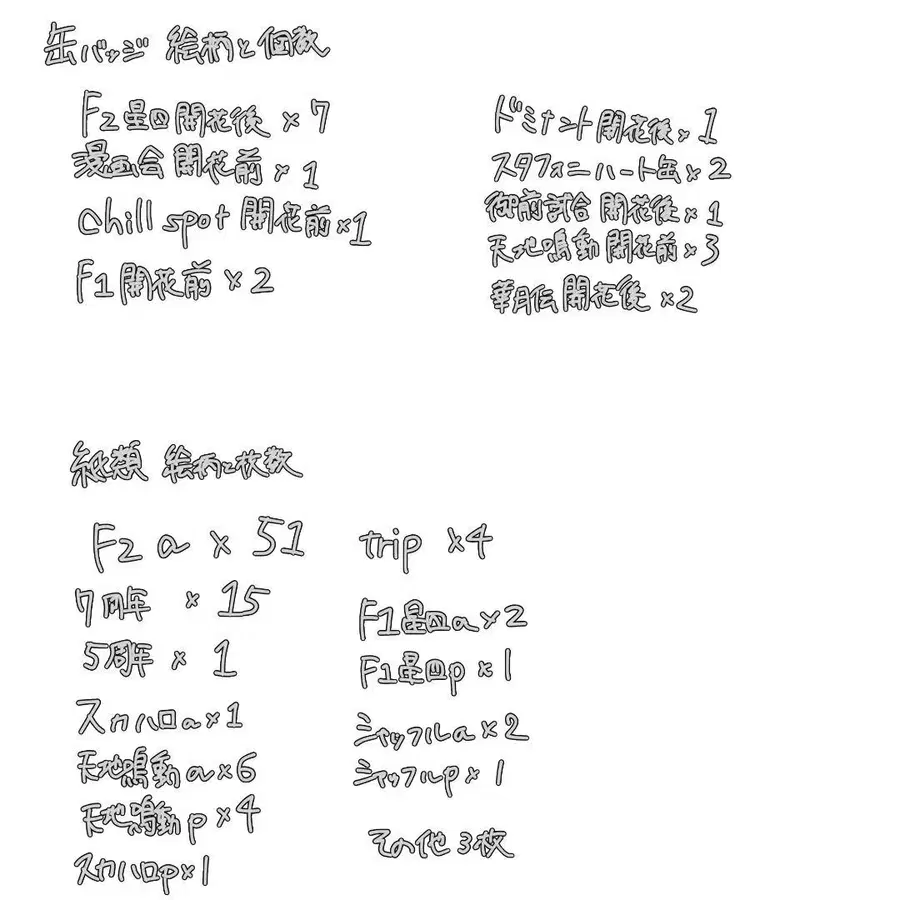 缶バッジ 絵柄と個数
F2星四開花後×7
漫画会開花前×1
chill spot 開花前×1
F1開花前×2
ドミナント開花後×1
スタフォニハート缶×2
御前試合開花後×1
天地鳴動開花前×3
華月伝開花後×2
紙類 絵柄と枚数
F2 a × 51
7周年 × 15
5周年 × 1
スカハロa×1
天地鳴動a×6
天地鳴動p×4
スカハロp×1
trip ×4
F1星四a×2
F1星四p×1
シャッフルa×2
シャッフルp×1
その他3枚